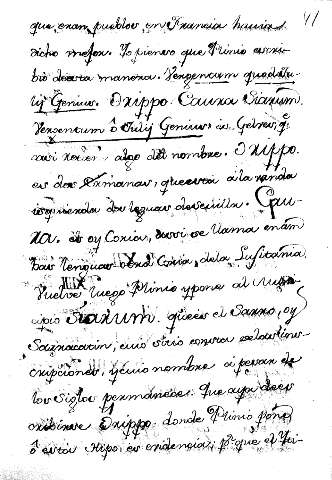 41
que eran pueblos en Francia huvier
dicho mejor. Yo pienso que Plinio escri-
bió de esta manera. Vergentum quod
tij Genius. Orippo. Caura Siarum.
Vergentum ô Julij Genius, es Gelves, q.
algo del nombre. Orippo.
es dos Ermanas, que esta a la vanda
izquierda dos leguas de Sevilla. Cau-
ra. es oy Coria, assi se llama en am
bas lenguas otra Coria, de la Lusitania.
Vuelve luego Plinio y pone al Muni
cipio Siarum. que es el Sarro, oy
Sarracatin, cuio sitio consta de las ins-
cripciones, y cuio nombre a pesar de
los Siglos permanece. Que aya de es
cribirse Orippo donde Plinio pone
ô esta Hipo es evidencia; p.r que el Iti-